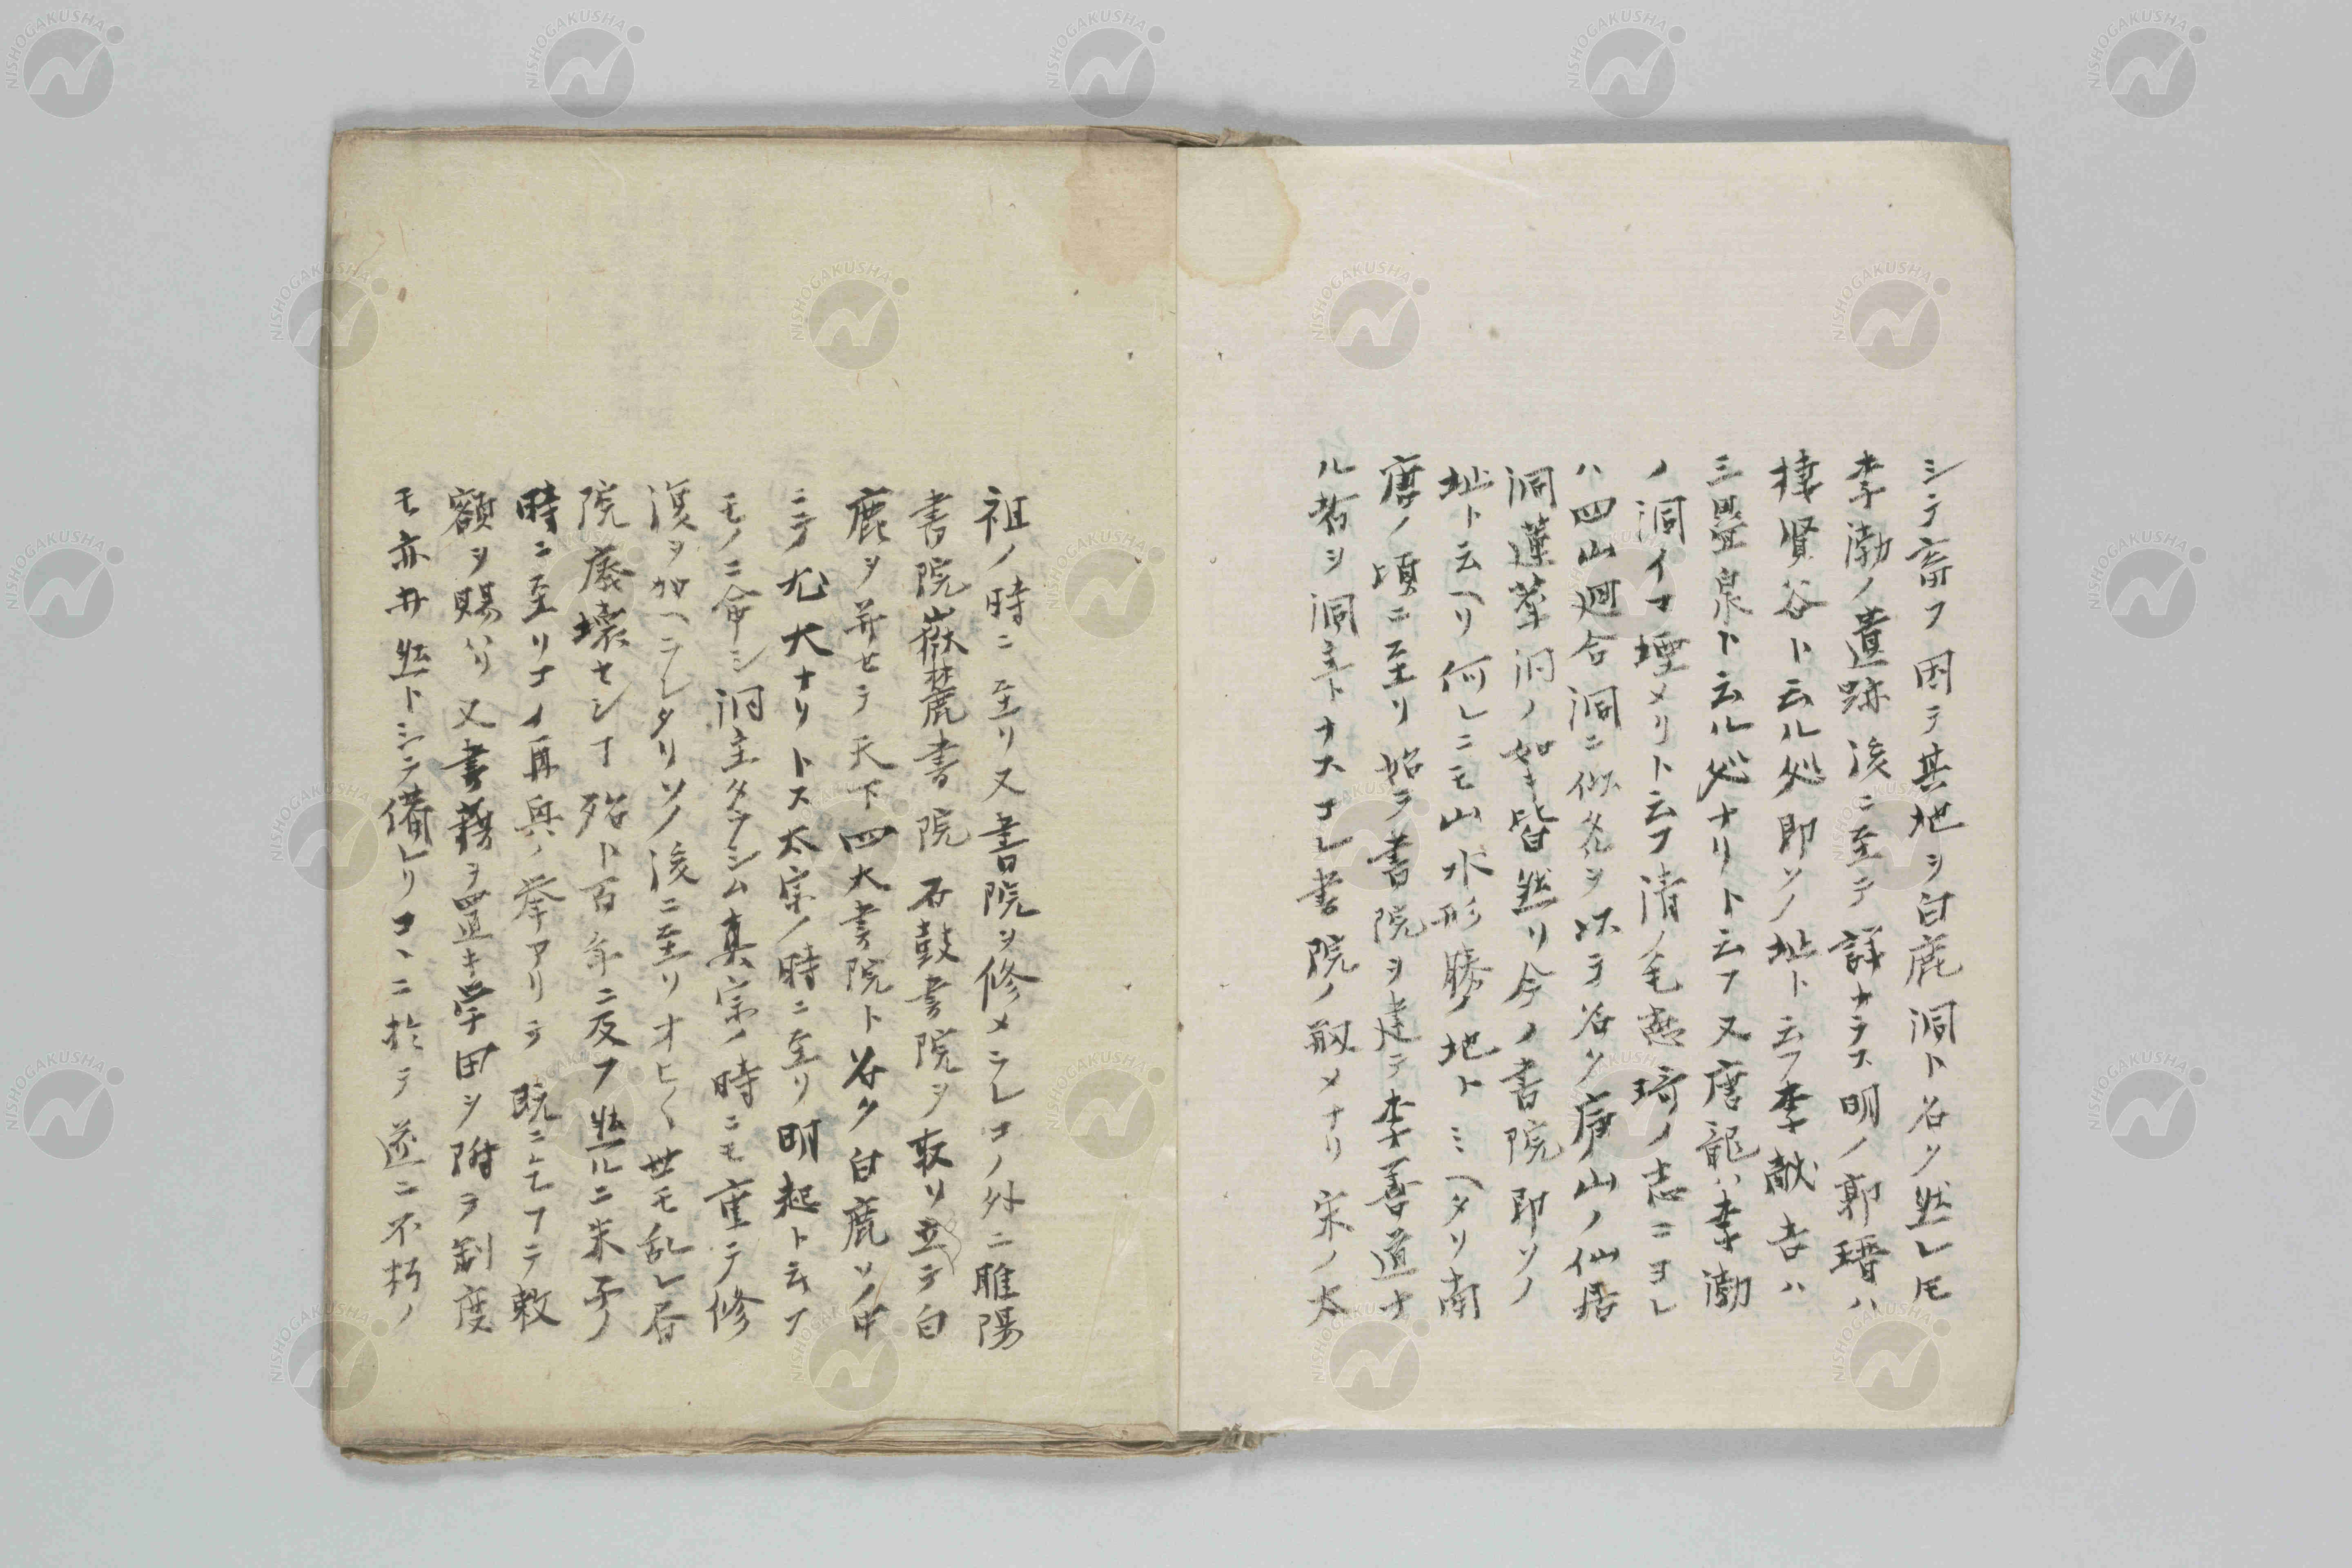 シテ畜フ因テ其地ヲ白鹿洞ト名ク然レ𪜈
李渤ノ遺跡後ニ至テ詳ナラス明ノ郭瑨ハ
棲賢谷ト云ル処即ソノ址ト云フ李献吉ハ
三疊泉ト云ル処ナリト云フ又唐龍ハ李渤
ノ洞イマ堙メリト云フ清ノ毛徳琦ノ志ニヨレ
ハ四山廻合洞ニ似タルヲ以テ名ク庐山ノ仙居
洞蓮華洞ノ如キ皆然リ今ノ書院即ソノ
址ト云ヘリ何レニモ山水形勝ノ地トミヘタリ南
唐ノ頃ニ至リ始テ書院ヲ建テ李善道ナ
ル者ヲ洞主トナスコレ書院ノ最メナリ宋ノ太
祖ノ時ニ至リ又書院ヲ修メラレコノ外ニ睢陽
書院嶽麓書院石鼓書院ヲ取リ立テ白
鹿ヲ并セテ天下四大書院ト名ク白鹿ソノ中
ニテ尤大ナリトス太宗ノ時ニ至リ明起ト云フ
モノニ命シ洞主タラシム真宗ノ時ニモ重テ修
復ヲ加ヘラレタリソノ後ニ至リオヒ〱世モ乱レ書
院廢壊セシヿ殆ト百年ニ及フ然ルニ朱子ノ
時ニ至リコノ再興ノ挙アリテ既ニ乞フテ敕
額ヲ賜ハリ又書籍ヲ置キ学田ヲ附テ制度
モ亦井然トシテ備レリコヽニ於テ遂ニ不朽ノ
NISHOGAKUSHA